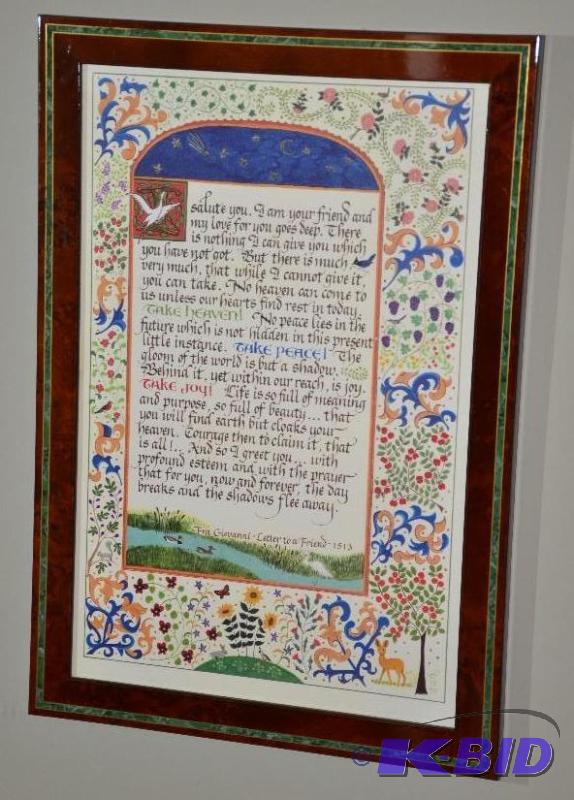 I salute you. I am your friend and
my love for you goes deep. There
is nothing I can give you which
you have not got. But there is much
very much, that while I cannot give it,
you can take. No heaven can come to
us unless our hearts find rest in today.
TAKE HEAVEN! No peace lies in the
future which is not hidden in this present
little instance. TAKE PEACE! The
gloom of the world is but a shadow.
Behind it, yet within our reach, is joy.
TAKE JOY! Life is so full of meaning
and purpose, so full of beauty... that
you will find earth but cloaks your
heaven. Courage then to claim it, that
is all!... And so I greet you... with
profound esteem and with the prayer
that for you, now and forever, the day
breaks and the shadows flee away.
Fra Giovanni · Letter to a Friend · 1513
© KBID